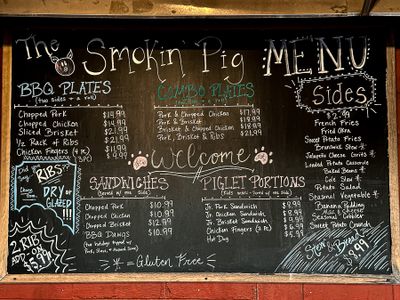 The Smokin Pig MENU
BBQ PLATES
(two sides + a roll)
Chopped Pork $14.99
Chopped Chicken $14.99
Sliced Brisket $21.99
1/2 Rack of Ribs $21.99
Chicken Fingers
COMBO PLATES
Pork & Chopped Chicken $17.99
Pork & Brisket $19.99
Brisket & Chopped Chicken $19.99
Pork, Brisket & Ribs $21.99
Sides
$2.99
French Fries
Fried Okra
Sweet Potato Fries
Brunswick Stew *
Jalapeño Cheese Grits *
Loaded Potato Casserole
Baked Beans *
Cole Slaw *
Potato Salad
Seasonal Vegetable *
Banana Pudding
Mac & Cheese
Seasonal Cobbler
Sweet Potato Crunch
RIBS
DRY or
GLAZED
!!!
Welcome
SANDWICHES
(Served w/ one side)
Chopped Pork $10.99
Chopped Chicken $10.99
Chopped Brisket $12.99
BBQ Dawgs $10.99
PIGLET PORTIONS
Jr. Pork Sandwich $8.99
Jr. Chicken Sandwich $8.99
Jr. Brisket Sandwich
Chicken Fingers (2 Pc) $6.99
Hot Dog
2 RIBS
ADD
* = Gluten Free
Stew & Bread
$8.99